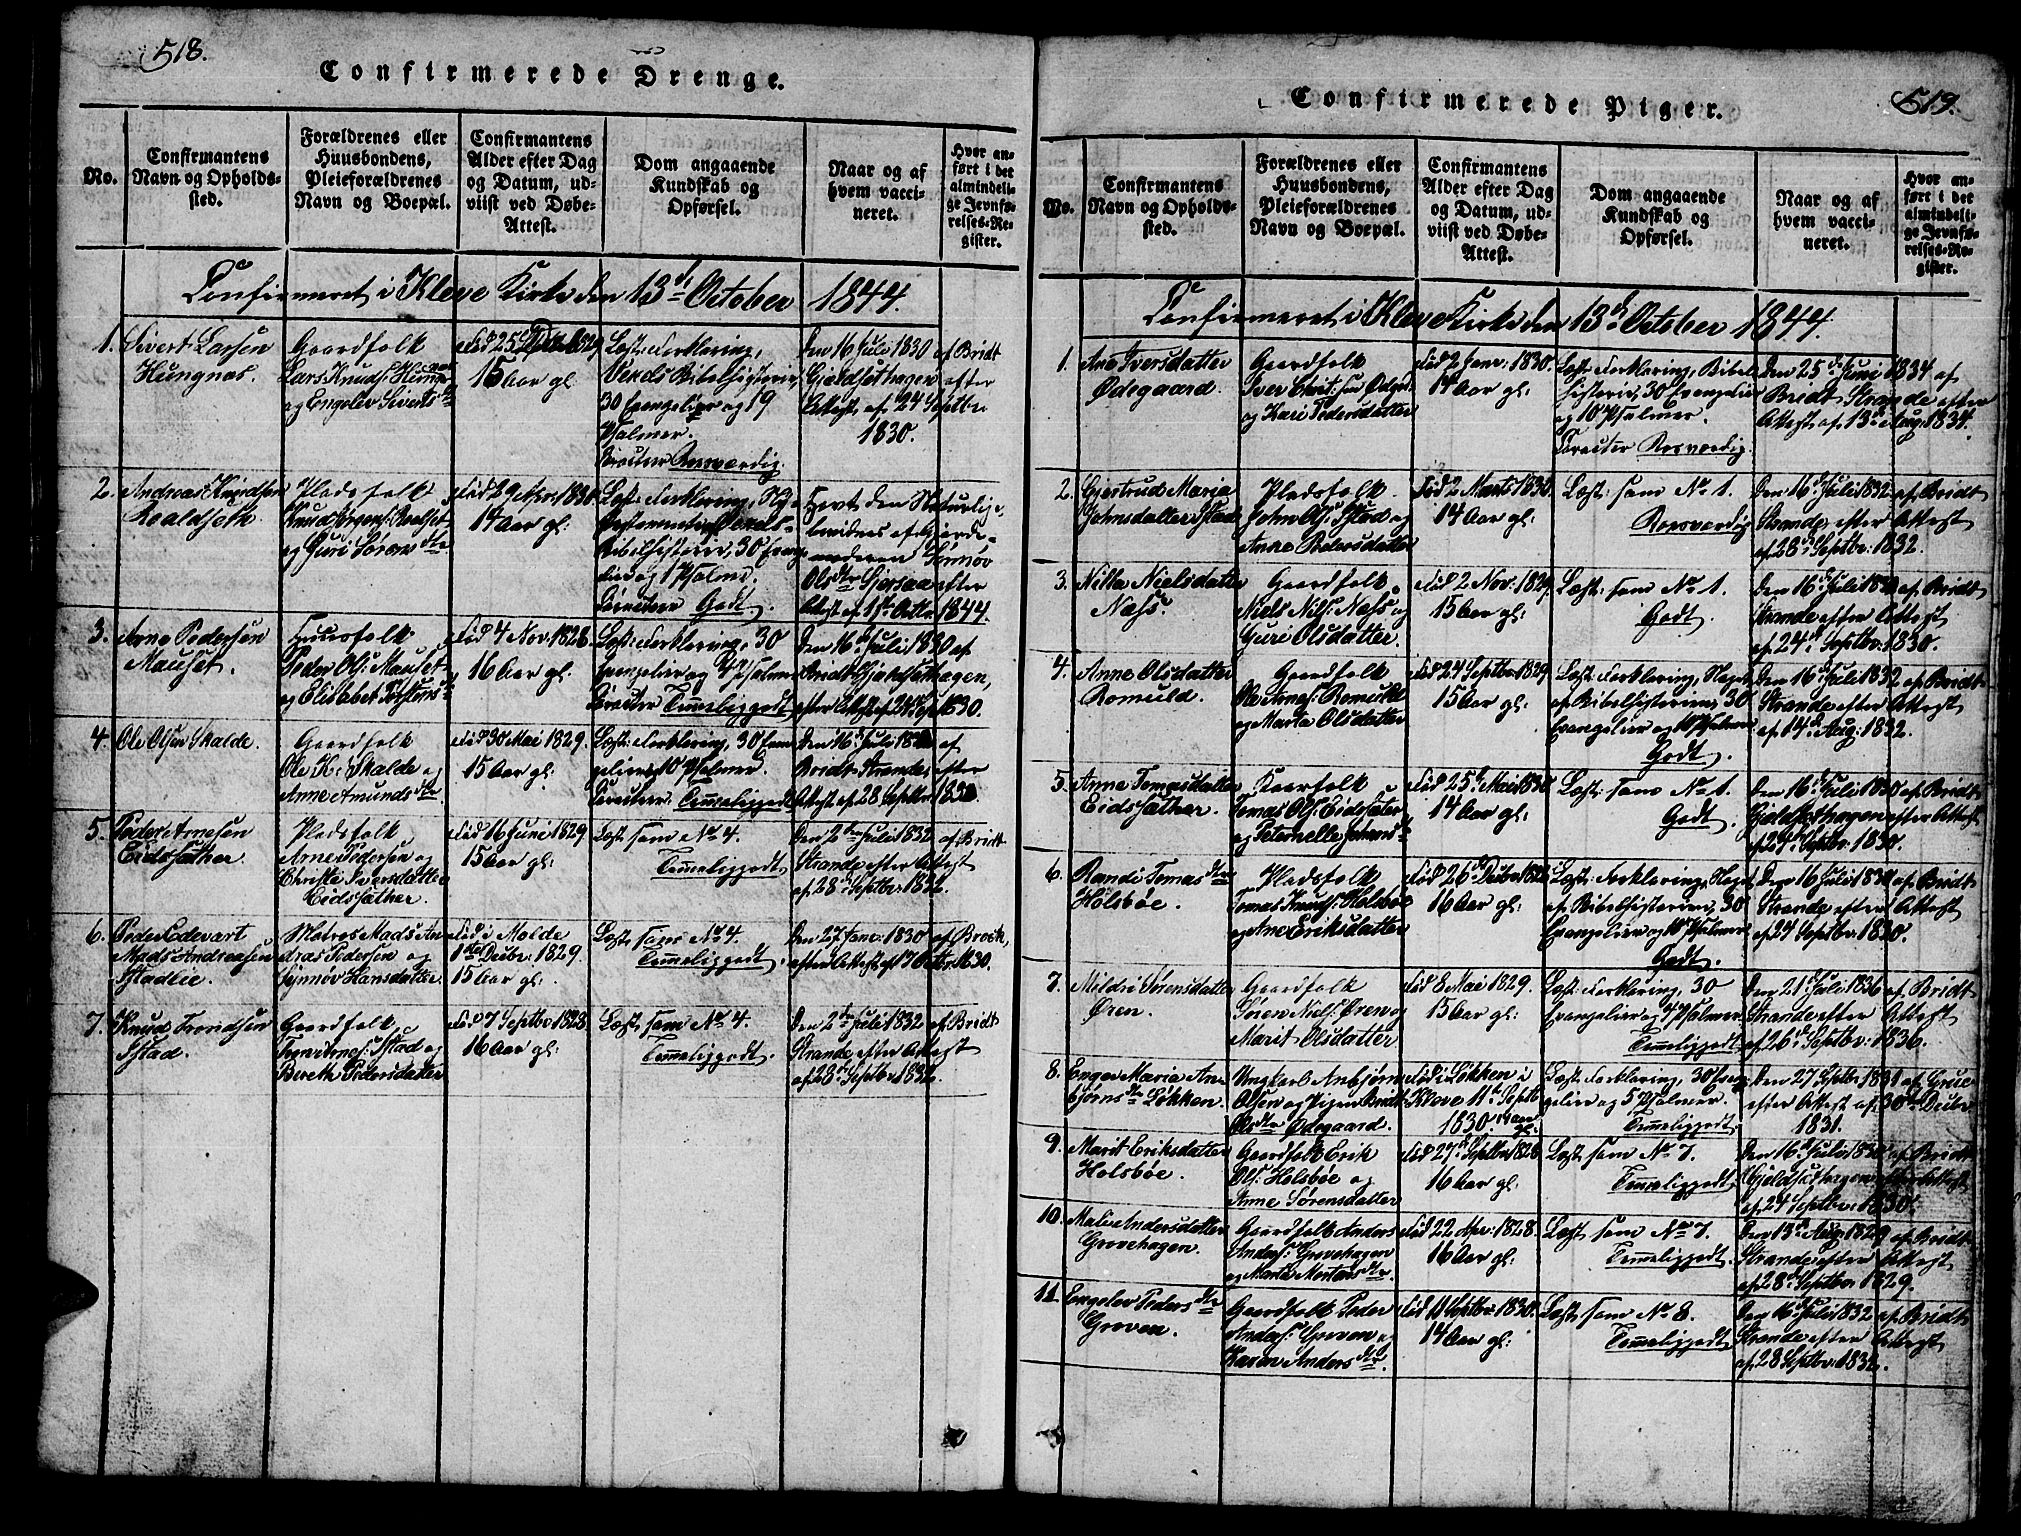 518.
Confirmerede Drenge.
No.
Confirmantens Navn og Opholds-sted.
Forældrenes eller Huusbondens, Pleieforældrenes Navn og Boepæl.
Confirmantens Alder efter Dag og Datum, ud-viist ved Døbe-Attest.
Dom angaaende Kundskab og Opførsel.
Naar og af hvem vacci-neret.
Hvor an-ført i det almindeli-ge Jevnfø-relses-Re-gister.
Confirmeret i Kleve Kirke den 13de October 1844.
1. Sivert Larsen
Hungnæs.
Gaardfolk
Lars Knuds:
og Engelev Siverts dtr
Fød 25
15 Aar gl.
Læst: Forklaring,
Bibelhistorie,
30 Evangelier og 19
Psalmer.
Den 16 Juli 1830 af Bridt
Gjeldsethagen efter
Attest, af 24 Septbr
1830.
2. Andreas Knudsen
Roaldseth
Pladsfolk
Knud Jørgens: Roalset
og Guri Sørens dtr
Fød 29 Apr: 1830
14 Aar gl.
Læst: Forklaring,
Bibelhistorie, 30
og 1 Psalme.
Godt.
Havt den Naturlige
af Gjorde-
moderen Sønnøv
Ols dtr efter
Attest af 1ste Octbr 1844.
3. Arne Pedersen
Mauset.
Huusfolk
Peder Ols: Mauset
og Elisabet
Fød 4 Nov: 1828
16 Aar gl.
Læst: Forklaring, 30
Evangelier og 4 Psalmer
Temmeliggodt
Den 16 Juli 1830 af
Bridt Gjeldsethagen,
efter Attest af 24 Sept 1830.
4. Ole Olsen Skalde.
Gaardfolk
Ole K: Skalde og
Anne Amunds dtr
Fød 30 Mai 1829.
15 Aar gl.
Læst: Forklaring, 30 Evan
gelier 10 Psalmer.
Temmeliggodt
Den 16 Juli af
Bridt Strande, efter
Attest af 28 Septbr
5. Peder Arnesen
Eidssæther.
Pladsfolk
Arne Pedersen og
Christi Iversdatter
Eidssæther.
Fød 16 Juni 1829
15 Aar gl.
Læst som No 4.
Temmeliggodt
Den 2den Juli 1832 af Bridt
Strande efter Attest
af 28 Septbr: 1832.
6. Peder Edevart
Mads Andreasen
Istadlie.
Matros Mads An
dreas Pedersen og
Synnøv Hansdatter
Fød i Molde
1ste Decbr: 1829.
15 Aar gl.
Læst som No 4.
Temmeliggodt.
Den 27 Janv: 1830 af Brock,
efter Attest af 17 Octbr 1830.
7. Knud Trondsen
Istad.
Gaardfolk
Istad og
Bereth Pedersdatter
Fød 7 Septbr 1828
16 Aar gl.
Læst som No 4.
Temmeliggodt.
Den 2den Juli 1832 af Bridt
Strande, efter Attest
af 28 Septbr: 1832.
519.
Confirmerede Piger.
No.
Confirmantens Navn og Opholds-sted.
Forældrenes eller Huusbondens, Pleieforældrenes Navn og Boepæl.
Confirmantens Alder efter Dag og Datum, ud-viist ved Døbe-Attest.
Dom angaaende Kundskab og Opførsel.
Naar og af hvem vacci-neret.
Hvor an-ført i det almindeli-ge Jevnfø-relses-Re-gister.
Confirmeret i Kleve Kirke den 13de October 1844.
1. Ane Iversdatter
Ødegaard.
Gaardfolk
Iver
og Kari Pedersdatter
Fød 2 Janv: 1830.
14 Aar gl.
Læst: Forklaring, Bibel
historie, 30 Evangelier
og 10 Psalmer.
Den 25 Juni 1834 af
Bridt Strande efter
Attest af 13de Aug: 1834.
2. Gjertrud Maria
Johnsdatter Istad
Pladsfolk
John Ols: Istad og
Anne Pedersdatter
Fød 2 Marts 1830.
14 Aar gl.
Læst: som No 1.
Den 16 Juli 1832 af Bridt
Strande, efter Attest
af 28 Septbr: 1832.
3. Nille Nielsdatter
Næss
Gaardfolk
Niels Nils: Næss og
Guri Olsdatter.
Fød 2 Nov: 1829.
15 Aar gl.
Læst: som No 1.
Godt.
Den 16 Juli 1830 af Bridt
Strande efter Attest
af 24 Septbr: 1830.
4. Anne Olsdatter
Romuld.
Gaardfolk
Ole Arnes: Romuld
og Marta Olsdatter
Fød 24 Septbr 1829
15 Aar gl.
Læst: Forklaring, Noget
af Bibelhistorien, 30
Evangelier og 10 Psalmer
Godt.
Den 16 Juli 1832 af Bridt
Strande efter Attest
af 14de Aug: 1832.
5. Anne Tomasdatter
Eidssæther.
Gaardfolk
Tomas Ols: Eidssæter
og Peternelle
Fød 25 Mai 1830
14 Aar gl.
Læst: som No 1.
Godt.
Den 16 Juli 1830 af Bridt
Gjeldsethagen efter Attest
af 24 Septbr: 1830.
6. Randi Tomas dtr
Holsbøe.
Pladsfolk
Tomas Knuds: Holsbøe
og Ane Eriksdatter
Fød 26 Decbr 1828
16 Aar gl.
Læst: Forklaring, Noget
af Bibelhistorien, 30
Evangelier og 10 Psalmer
Godt.
Den 16 Juli 1830 af Bridt
Strande efter Attest
af 24 Septbr: 1830.
7. Mildri Sørensdatter
Øren.
Gaardfolk
Søren Niels: Øren og
Marit Olsdatter
Fød 8 Mai 1829.
15 Aar gl.
Læst: Forklaring, 30
Evangelier og 4 Psalmer.
Temmeliggodt
Den 21 Juli 1836 af Bridt
Strande efter Attest
af 26 Septbr: 1836.
8. Enger Maria An
bjørns dtr Løkken.
Ungkarl Anbjørn
Olsen og Pigen Bridt
Ols dtr Ødegaard.
Fød i Løkken i
Kleve 11te Septbr
1830. 14 Aar gl.
Læst: Forklaring, 30 Evan
gelier og 5 Psalmer.
Temmeliggodt
Den 27 Septbr 1831 af Grue
efter Attest af 30 Decbr
1831.
9. Marit Eriksdatter
Holsbøe.
Gaardfolk Erik
Ols: Holsbøe og
Anne Sørensdatter
Fød 27 Septbr 1828
16 Aar gl.
Læst: som No 7.
Temmeliggodt
Den 16 Juli 1830 af Bridt
Gjeldsethagen efter Attest
af 24 Septbr: 1830.
10. Mali Andersdatter
Grovehagen.
Gaardfolk Anders
Anders: Grovehagen
og Marta Mortens dtr.
Fød 22 Apr: 1828.
16 Aar gl.
Læst som No 7.
Temmeliggodt.
Den 13de Aug: 1829 af Bridt
Strande efter Attest
af 28 Septbr: 1829.
11. Engelev Peders dtr
Groven.
Gaardfolk Peder
Anders: Groven og
Karen Anders dtr.
Fød 11 Septbr: 1830.
14 Aar gl.
Læst som No 8.
Temmeliggodt
Den 16 Juli 1832 af Bridt
Strande efter Attest
af 28 Septbr: 1832.